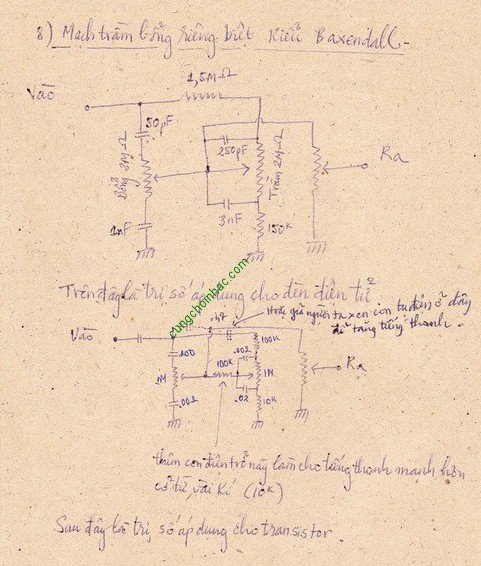 8) Mạch trầm bổng riêng biệt Kiểu Baxendall -
1,5MΩ
Vào
50pF
250pF
Bổng 2MΩ
Trầm 2MΩ
Ra
3nF
1nF
150K
cungchoinhac.com
Trên đây là trị số áp dụng cho đèn điện tử
.47
Hoặc giả người ta xen con tụ điện ở đây
để tăng tiếng thanh.
Vào
100K
100
.002
100K
1M
1M
Ra
.002
.02
10K
thêm con điện trở này làm cho tiếng thanh mạnh hơn
cỡ từ vài Kí (10K)
Sau đây là trị số áp dụng cho transistor.